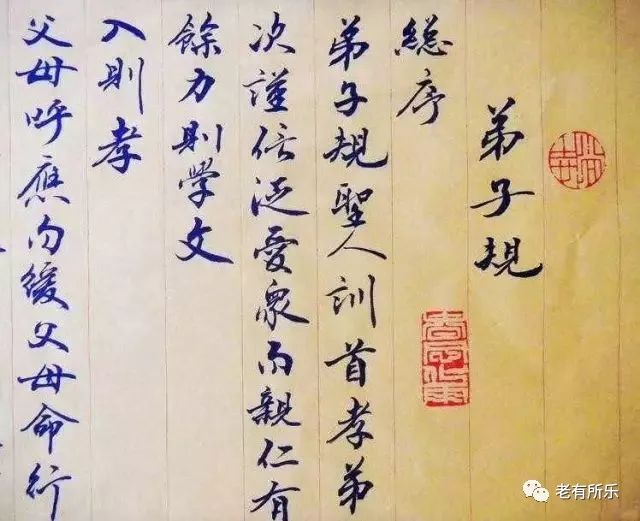 弟子規
総序
弟子規聖人訓首孝弟
次謹信泛愛衆而親仁有
餘力則學文
入則孝
父母呼應勿緩父母命行
老有所乐